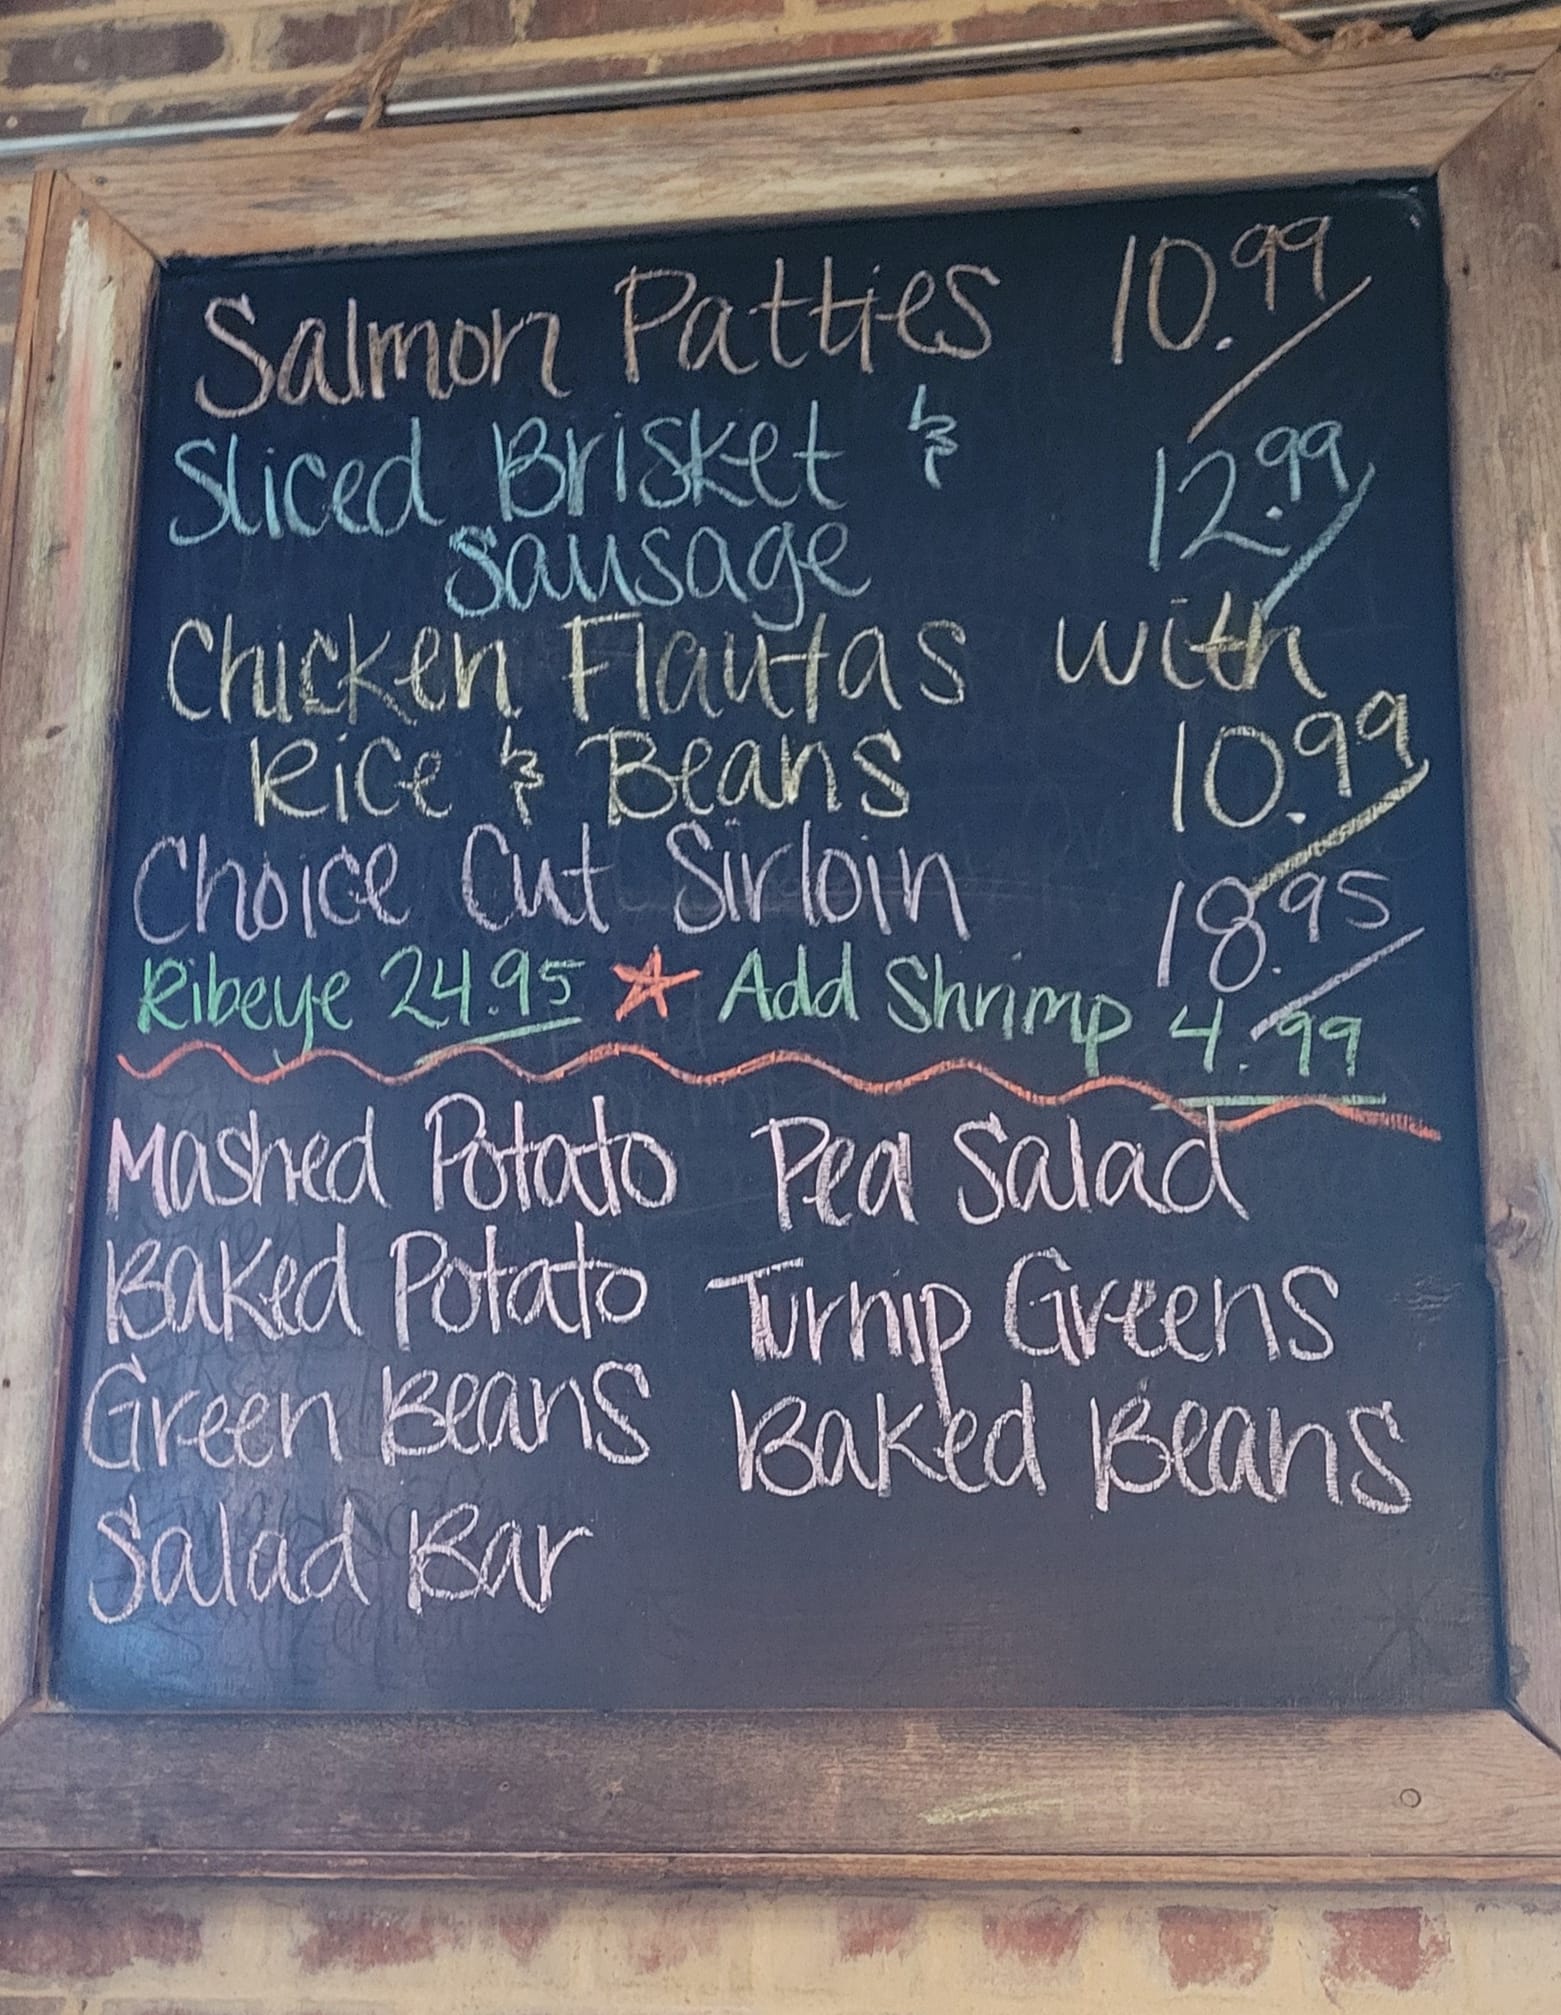 Salmon Patties 10.99
Sliced Brisket &
sausage 12.99
Chicken Flautas with
Rice & Beans 10.99
Choice Cut Sirloin 18.95
Ribeye 24.95 ★ Add Shrimp 4.99
Mashed Potato Pea Salad
Baked Potato Turnip Greens
Green Beans Baked Beans
Salad Bar